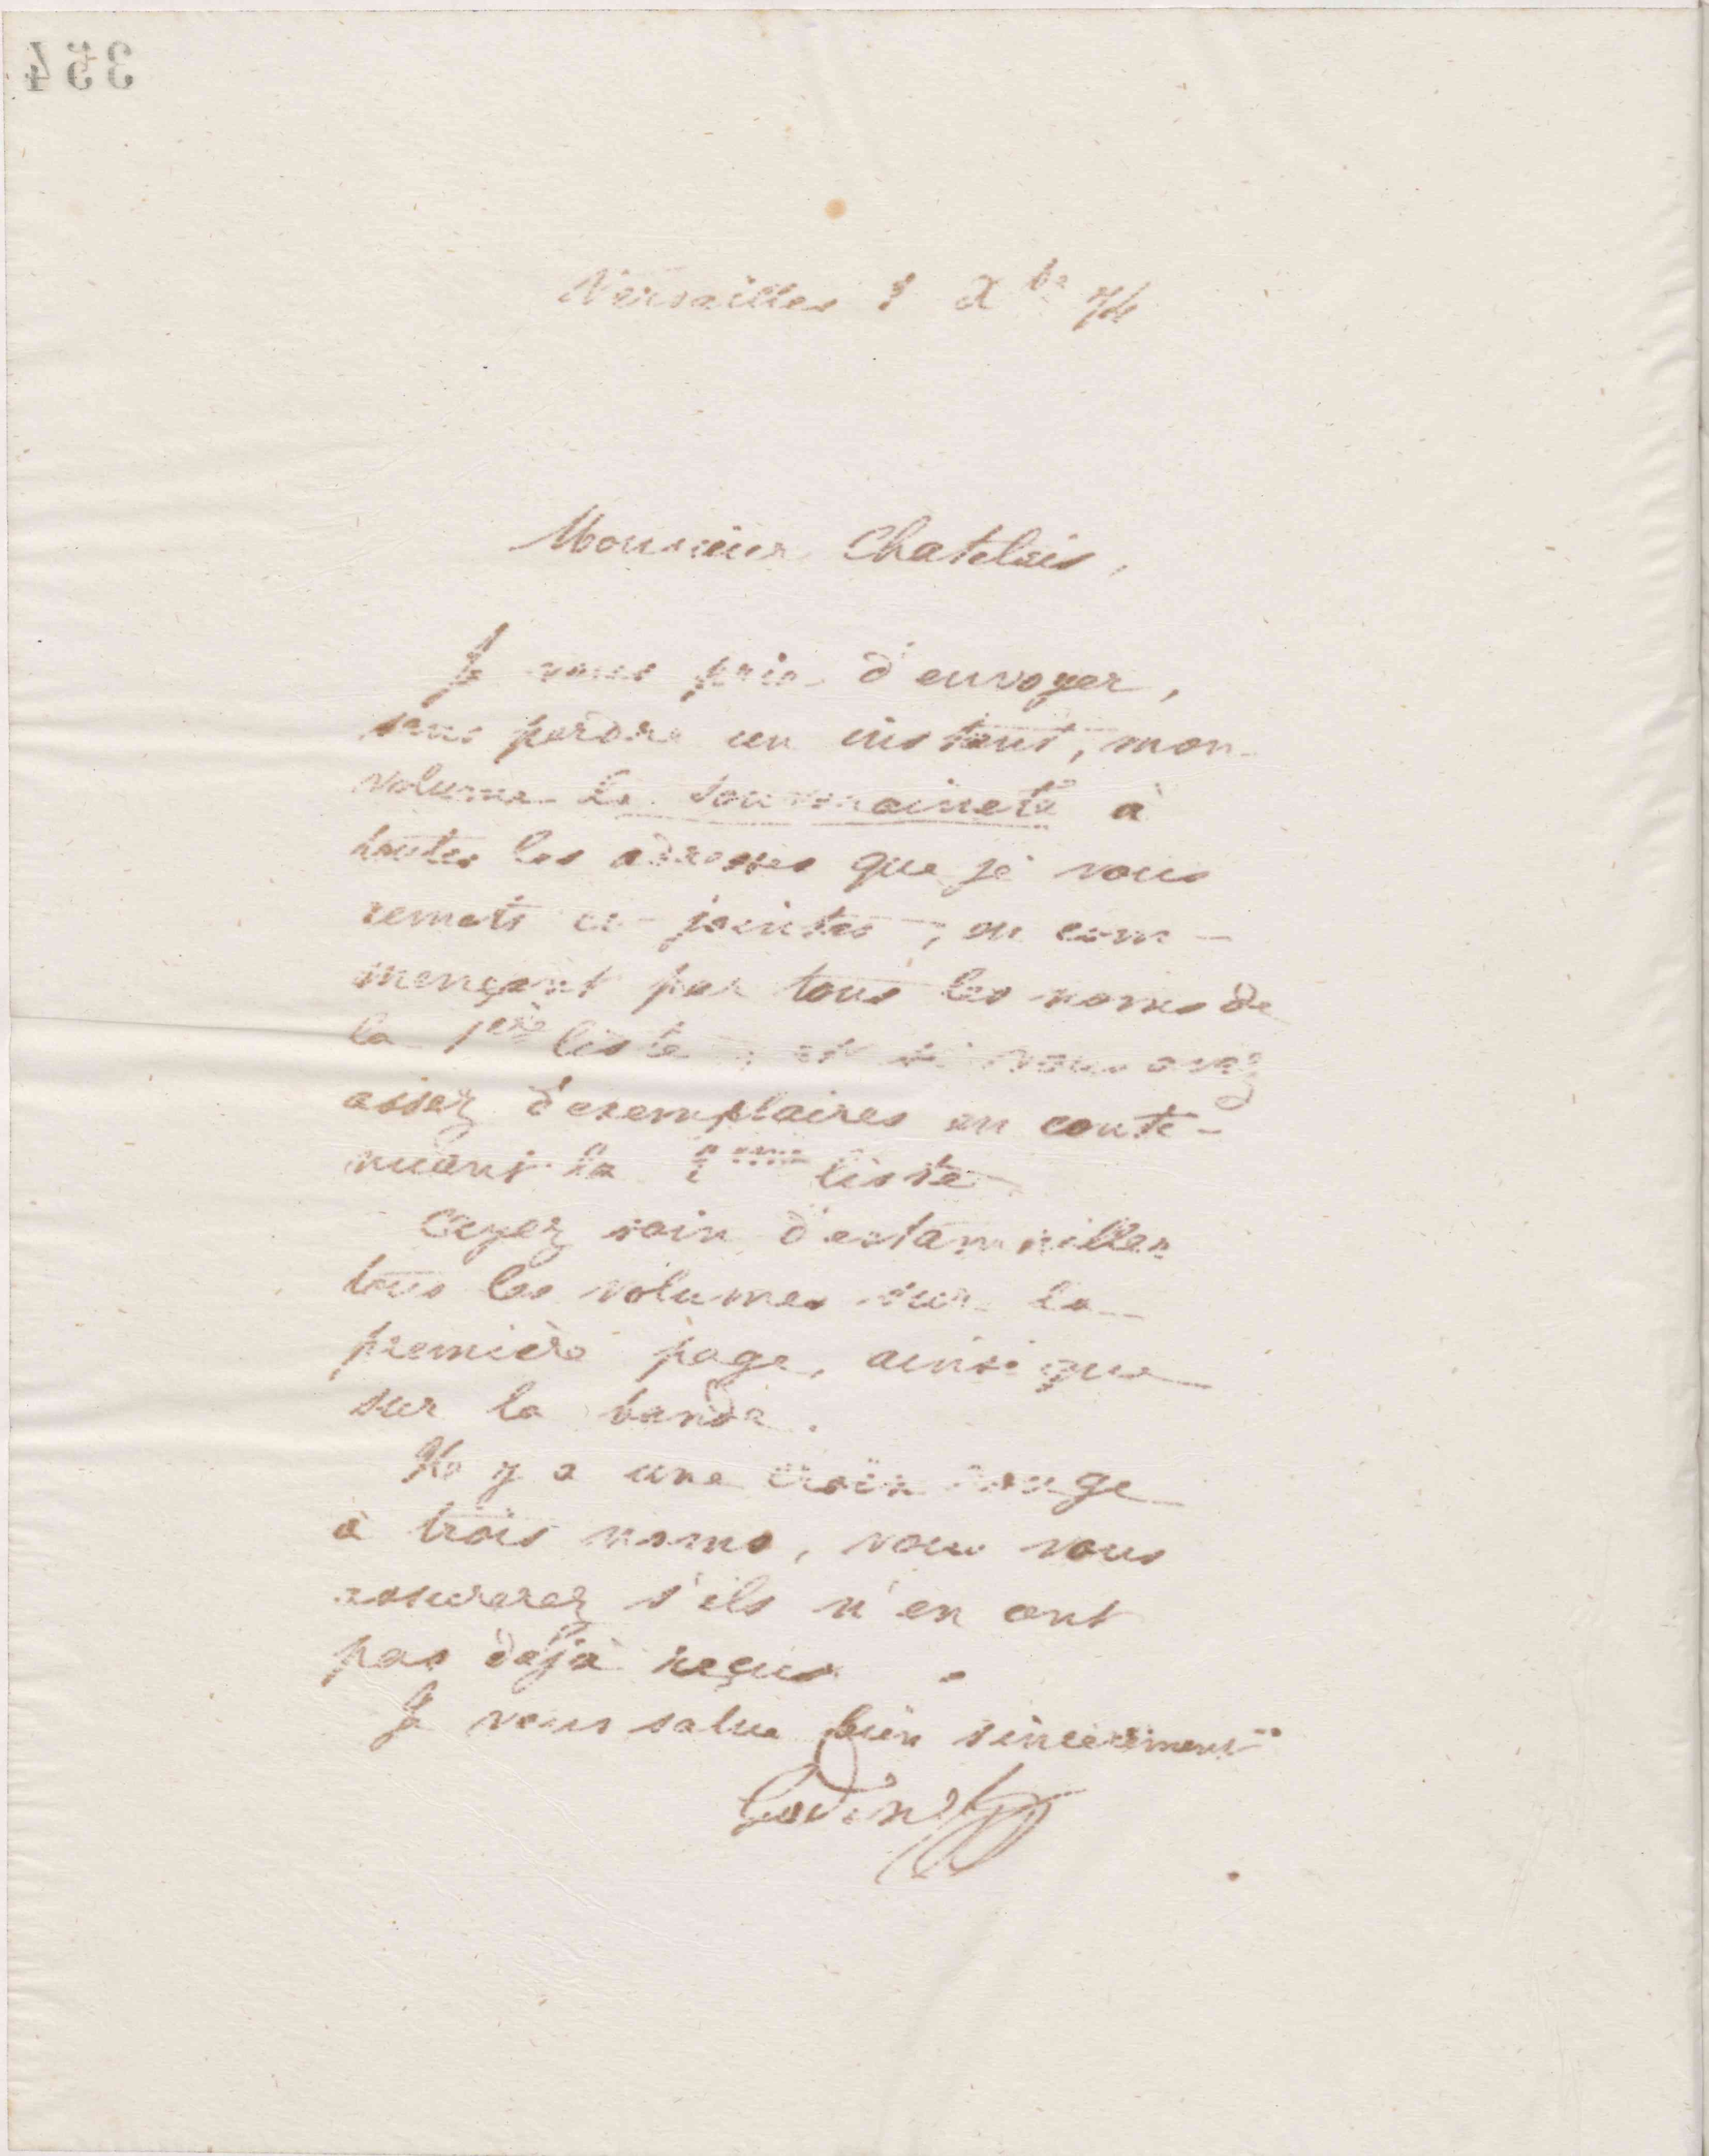 354
Versailles 8 Xbre 74
Monsieur Chatelais,
Je vous prie d'envoyer,
sans perdre un instant, mon
volume La souveraineté à
toutes les adresses que je vous
remets ci-jointes, en com-
mençant par tous les noms de
la 1ère liste ; et si vous avez
assez d'exemplaires en conti-
nuant la 2eme liste
Ayez soin d'estampiller
tous les volumes sur la
première page, ainsi que
sur la bande.
Il y a une croix rouge
à trois noms, vous vous
assurerez s'ils n'en ont
pas déjà reçus.
Je vous salue bien sincèrement
Godin